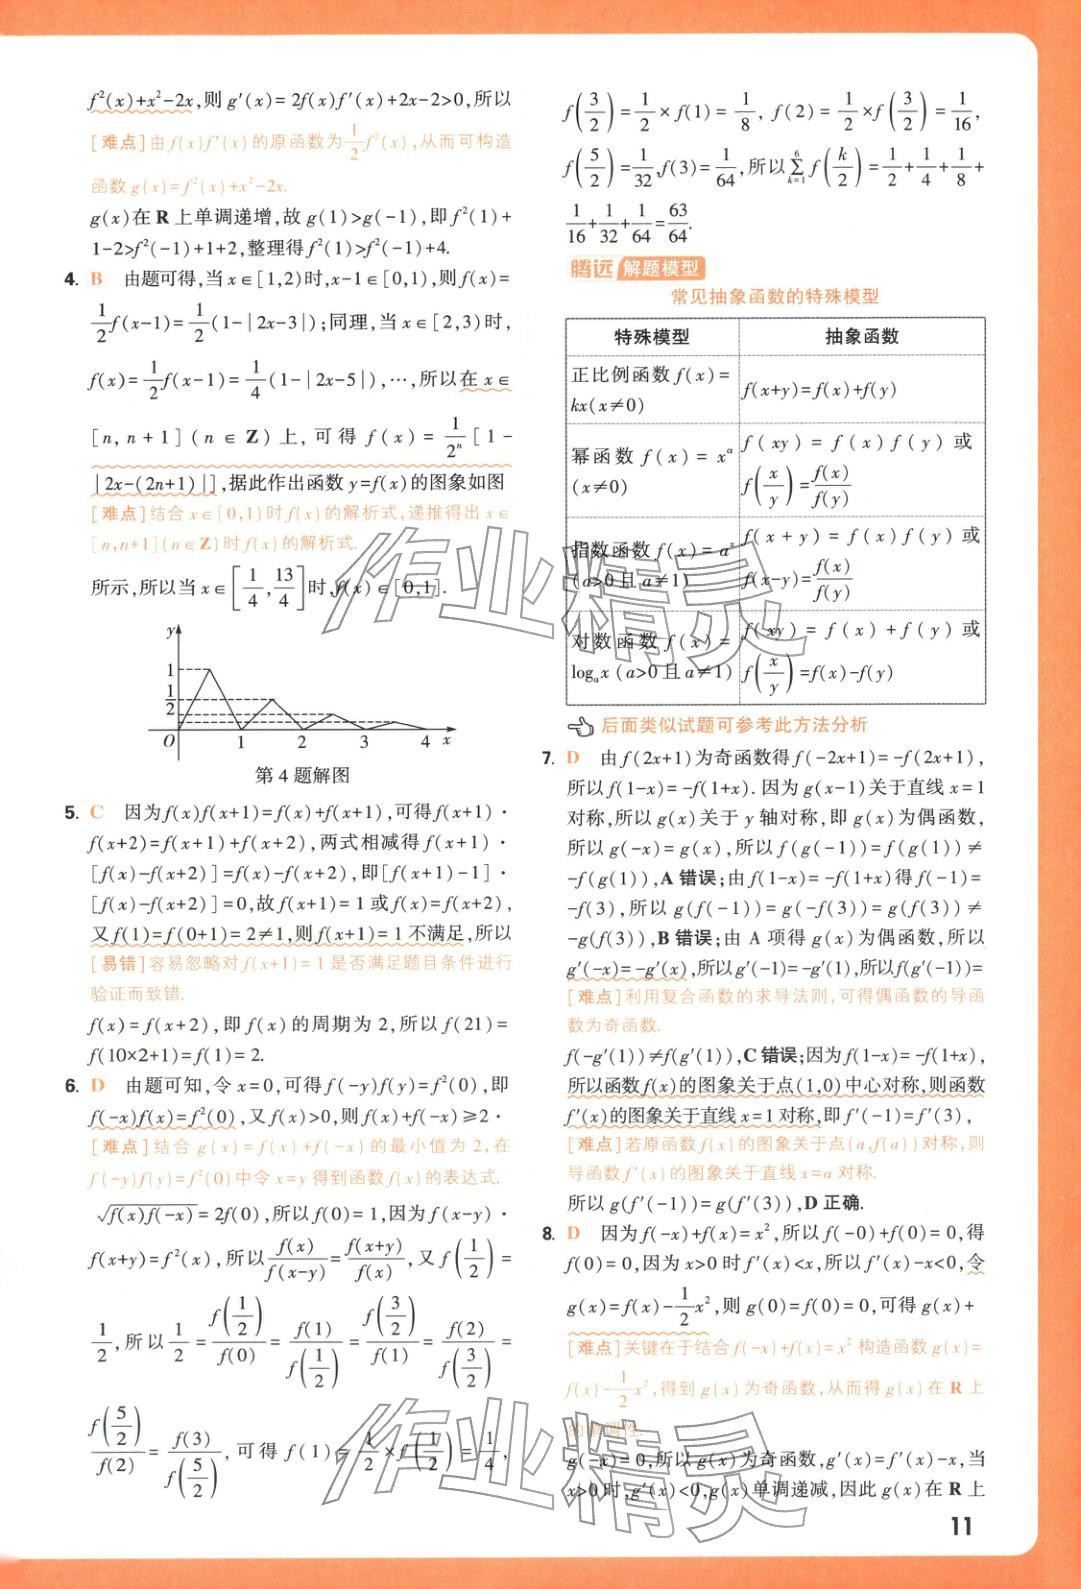 f²(x)+x²-2x,则 g′(x)= 2f(x)f′(x)+2x-2>0,所以
[难点]由 f(x)f′(x)的原函数为 1/2 f²(x),从而可构造
函数 g(x)=f²(x)+x²-2x.
g(x)在 R 上单调递增,故 g(1)>g(-1),即 f²(1)+
1-2>f²(-1)+1+2,整理得 f²(1)>f²(-1)+4.
4. B 由题可得,当 x∈[1,2)时,x-1∈[0,1),则 f(x)=
1/2 f(x-1)= 1/2 (1-|2x-3|);同理,当 x∈[2,3)时,
f(x)= 1/2 f(x-1)= 1/4 (1-|2x-5|),…,所以在 x∈
[n,n+1](n∈Z)上,可得 f(x)= 1/2ⁿ [1-
|2x-(2n+1)|],据此作出函数 y=f(x)的图象如图
[难点]结合 x∈[0,1)时 f(x)的解析式,递推得出 x∈
[n,n+1](n∈Z)时 f(x)的解析式.
所示,所以当 x∈[1/4,13/4]时,f(x)∈[0,1].
y
1
1/2
O 1 2 3 4 x
第 4 题解图
5. C 因为 f(x)f(x+1)=f(x)+f(x+1),可得 f(x+1)·
f(x+2)=f(x+1)+f(x+2),两式相减得 f(x+1)·
[f(x)-f(x+2)]=f(x)-f(x+2),即[f(x+1)-1]·
[f(x)-f(x+2)]=0,故 f(x+1)=1 或 f(x)=f(x+2),
又 f(1)=f(0+1)=2≠1,则 f(x+1)=1 不满足,所以
[易错]容易忽略对 f(x+1)=1 是否满足题目条件进行
验证而致错.
f(x)=f(x+2),即 f(x)的周期为 2,所以 f(21)=
f(10×2+1)=f(1)=2.
6. D 由题可知,令 x=0,可得 f(-y)f(y)=f²(0),即
f(-x)f(x)=f²(0),又 f(x)>0,则 f(x)+f(-x)≥2·
[难点]结合 g(x)=f(x)+f(-x)的最小值为 2,在
f(-y)f(y)=f²(0)中令 x=y 得到函数 f(x)的表达式.
√f(x)f(-x)=2f(0),所以 f(0)=1,因为 f(x-y)·
f(x+y)=f²(x),所以 f(x)/f(x-y)=f(x+y)/f(x),又 f(1/2)=
1/2,所以 1/2=f(1/2)/f(0)=f(1)/f(1/2)=f(3/2)/f(1)=f(2)/f(3/2)=
f(5/2)/f(2)=f(3)/f(5/2),可得 f(1)=1/2×f(1/2)=1/4,
f(3/2)=1/2×f(1)=1/8,f(2)=1/2×f(3/2)=1/16,
f(5/2)=1/32,f(3)=1/64,所以 ∑(k=1,6) f(k/2)=1/2+1/4+1/8+
1/16+1/32+1/64=63/64.
腾远 解题模型
常见抽象函数的特殊模型
特殊模型 抽象函数
正比例函数 f(x)=kx(x≠0) f(x+y)=f(x)+f(y)
幂函数 f(x)=xᵅ(x≠0) f(xy)=f(x)f(y)或 f(x/y)=f(x)/f(y)
指数函数 f(x)=aˣ(a>0 且 a≠1) f(x+y)=f(x)f(y)或 f(x-y)=f(x)/f(y)
对数函数 f(x)=logₐx(a>0 且 a≠1) f(xy)=f(x)+f(y)或 f(x/y)=f(x)-f(y)
后面类似试题可参考此方法分析
7. D 由 f(2x+1)为奇函数得 f(-2x+1)=-f(2x+1),
所以 f(1-x)=-f(1+x).因为 g(x-1)关于直线 x=1
对称,所以 g(x)关于 y 轴对称,即 g(x)为偶函数,
所以 g(-x)=g(x),所以 f(g(-1))=f(g(1))≠
-f(g(1)),A 错误;由 f(1-x)=-f(1+x)得 f(-1)=
-f(3),所以 g(f(-1))=g(-f(3))=g(f(3))≠
-g(f(3)),B 错误;由 A 项得 g(x)为偶函数,所以
g′(-x)=-g′(x),所以 g′(-1)=-g′(1),所以 f(g′(-1))=
[难点]利用复合函数的求导法则,可得偶函数的导函
数为奇函数.
f(-g′(1))≠f(g′(1)),C 错误;因为 f(1-x)=-f(1+x),
所以函数 f(x)的图象关于点(1,0)中心对称,则函数
f′(x)的图象关于直线 x=1 对称,即 f′(-1)=f′(3),
[难点]若原函数 f(x)的图象关于点(a,f(a))对称,则
导函数 f′(x)的图象关于直线 x=a 对称.
所以 g(f′(-1))=g(f′(3)),D 正确.
8. D 因为 f(-x)+f(x)=x²,所以 f(-0)+f(0)=0,得
f(0)=0,因为 x>0 时 f′(x)<x,所以 f′(x)-x<0,令
g(x)=f(x)-1/2 x²,则 g(0)=f(0)=0,可得 g(x)+
[难点]关键在于结合 f(-x)+f(x)=x² 构造函数 g(x)=
f(x)-1/2 x²,得到 g(x)为奇函数,从而得 g(x)在 R 上
的单调性.
g(-x)=0,所以 g(x)为奇函数,g′(x)=f′(x)-x,当
x>0 时,g′(x)<0,g(x)单调递减,因此 g(x)在 R 上
11
作业精灵
作业精灵